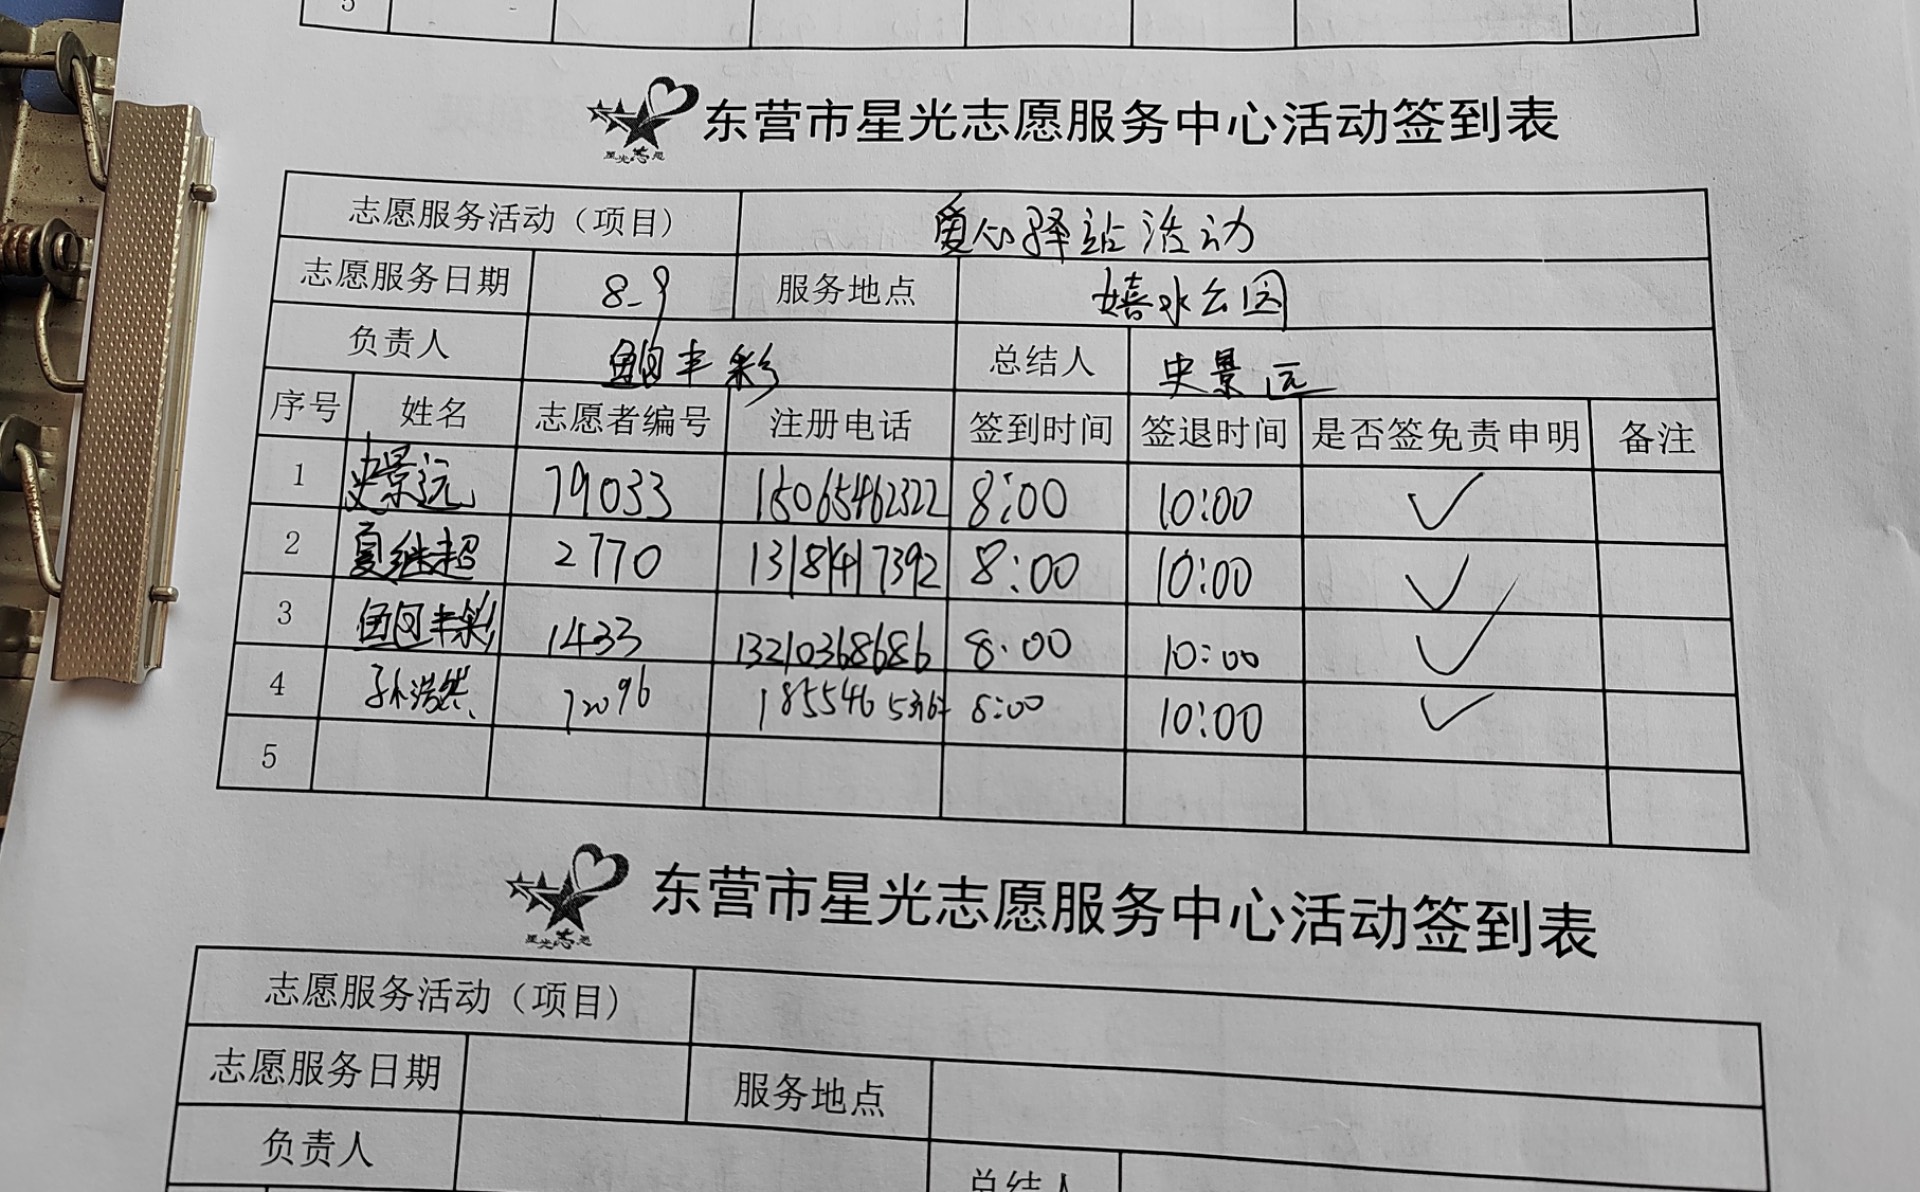 5
东营市星光志愿服务中心活动签到表
星光志愿
志愿服务活动（项目） 爱心驿站活动
志愿服务日期 8-9 服务地点 嬉水公园
负责人 丰彩 总结人 史景远
序号 姓名 志愿者编号 注册电话 签到时间 签退时间 是否签免责申明 备注
1 史景远 79033 15065462322 8:00 10:00 ✓
2 夏继超 2770 13181417392 8:00 10:00 ✓
3 丰彩 1433 13210368686 8:00 10:00 ✓
4 孙浩然 72096 8:00 10:00 ✓
5
东营市星光志愿服务中心活动签到表
星光志愿
志愿服务活动（项目）
志愿服务日期 服务地点
负责人 总结人